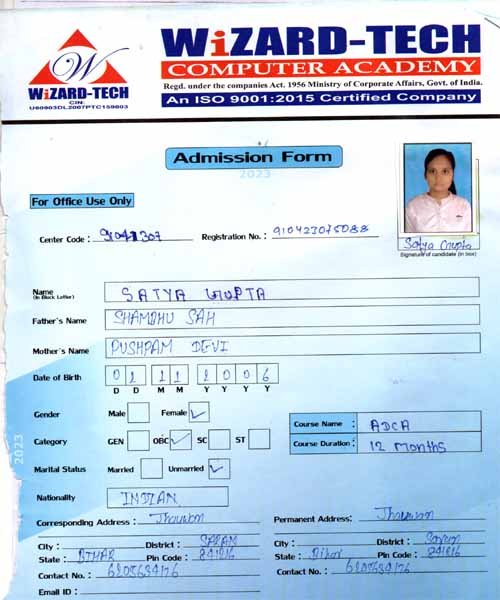 WiZARD-TECH
COMPUTER ACADEMY
Regd. under the companies Act. 1956 Ministry of Corporate Affairs, Govt. of India.
An ISO 9001:2015 Certified Company
W
WiZARD-TECH
CIN:
U80903DL2007PTC159803
Admission Form
2023
For Office Use Only
Center Code : 91041307 Registration No. : 910423075088
Satya Gupta
Signature of candidate (in box)
Name SATYA GUPTA
(In Block Letter)
Father's Name SHAMBHU SAH
Mother's Name PUSHPAM DEVI
Date of Birth 01 11 2006
D D M M Y Y Y Y
Gender Male Female ✓
Category GEN OBC ✓ SC ST
Course Name : ADCA
Course Duration : 12 Months
2023
Marital Status Married Unmarried ✓
Nationality INDIAN
Corresponding Address : Permanent Address :
City : District : SARAN City : District : Saran
State : BIHAR Pin Code : 841216 State : Bihar Pin Code : 841216
Contact No. : Contact No. :
Email ID :